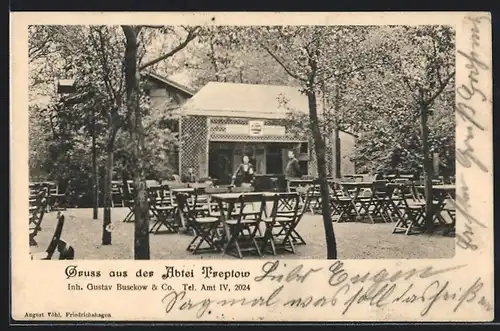 Gruss aus der Abtei Treptow
Inh. Gustav Busekow & Co. Tel. Amt IV, 2024
Lieber Eugen
Sag mal was soll das heißen
August Vöhl, Friedrichshagen